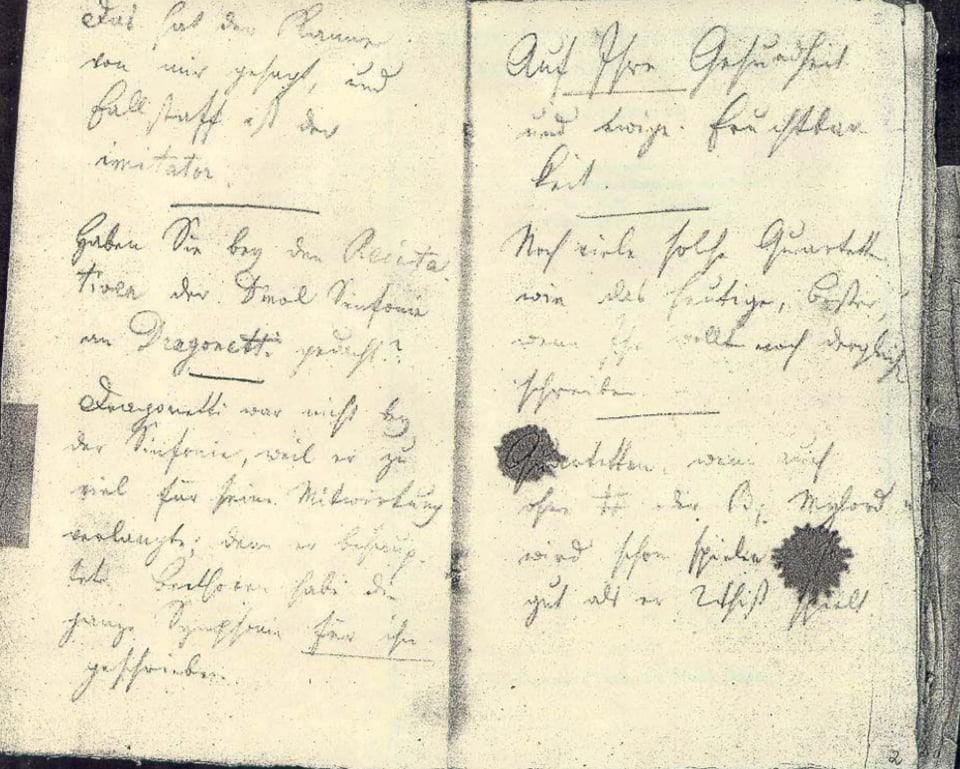 Das hat der
von mir gesagt, und
Fallstaff ist der
imitator.
Haben Sie bey den Recita
tiven der Dmol Sinfonie
an Dragonetti gedacht?
Dragonetti war nicht bey
der Sinfonie, weil er zu
viel für seine Mitwirkung
verlangte; denn er behaup
tete Beethoven habe die
ganze Symphonie für ihn
geschrieben.
Auf Ihre Gesundheit
und ewige Fruchtbar
keit.
Noch viele solche Quartette
wie das heutige, bester,
wenn Ihr wollt noch dergleich
schreiben.
Quartetten, wenn auch
ohne # oder B, Mylord
wird schon spielen
gut als er Whist spielt
2